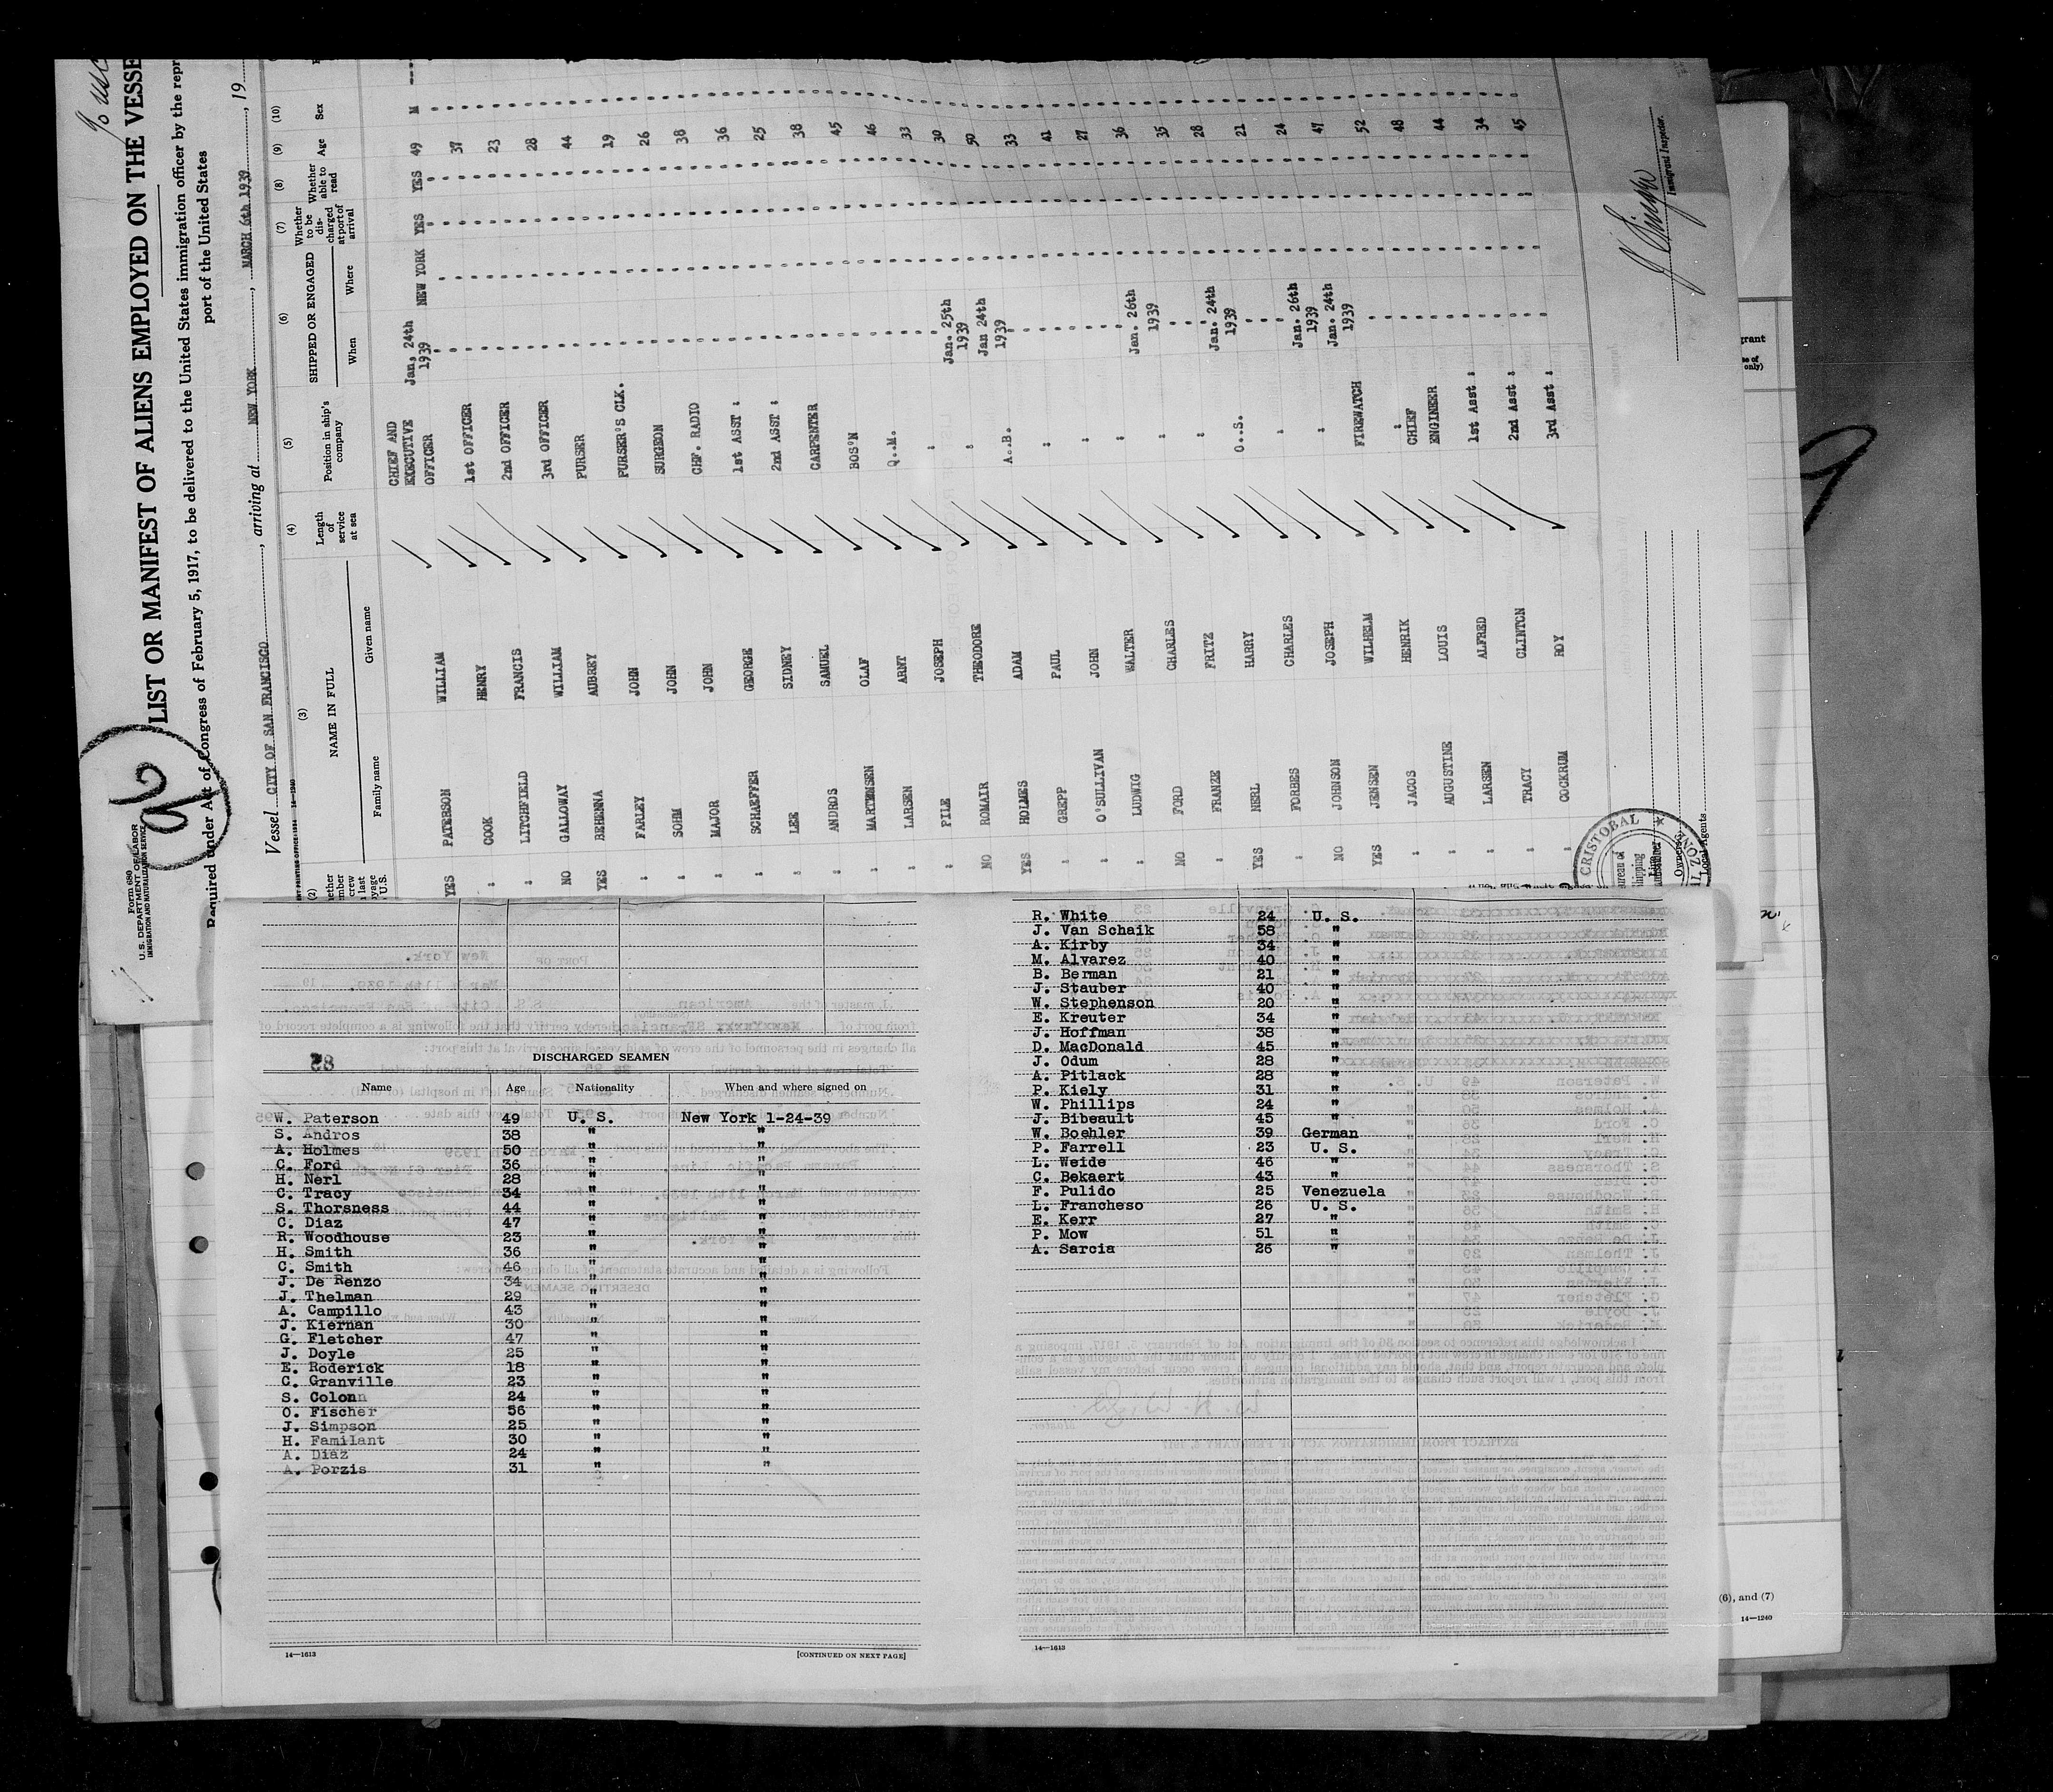 Form 680
U. S. DEPARTMENT OF LABOR
IMMIGRATION AND NATURALIZATION SERVICE
96
LIST OR MANIFEST OF ALIENS EMPLOYED ON THE VESSE
Required under Act of Congress of February 5, 1917, to be delivered to the United States immigration officer by the repr
port of the United States
Vessel CITY OF SAN FRANCISCO, arriving at NEW YORK, MARCH 6th 1939, 19
(2) (3) (4) (5) (6) (7) (8) (9) (10)
NAME IN FULL
Family name Given name
Length of service at sea
Position in ship's company
SHIPPED OR ENGAGED
When Where
Whether to be discharged at port of arrival
Whether able to read
Age
Sex
YES PATERSON WILLIAM CHIEF AND EXECUTIVE OFFICER Jan, 24th 1939 NEW YORK YES YES 49 M
" COOK HENRY 1st OFFICER " " " " 37 "
" LITCHFIELD FRANCIS 2nd OFFICER " " " " 23 "
NO GALLOWAY WILLIAM 3rd OFFICER " " " " 28 "
YES BEHENNA AUBREY PURSER " " " " 44 "
" FARLEY JOHN PURSER'S CLK. " " " " 19 "
" SOHM JOHN SURGEON " " " " 26 "
" MAJOR JOHN CHF. RADIO " " " " 38 "
" SCHAEFFER GEORGE 1st ASST : " " " " 36 "
" LEE SIDNEY 2nd ASST : " " " " 25 "
" ANDROS SAMUEL CARPENTER " " " " 38 "
" MARTENSEN OLAF BOS'N " " " " 45 "
" LARSEN ARNT Q..M. " " " " 46 "
" PILE JOSEPH " " " " " 33 "
NO ROMAIR THEODORE " Jan. 25th 1939 " " " 30 "
YES HOLMES ADAM A..B. Jan 24th 1939 " " " 50 "
" GREPP PAUL " " " " " 33 "
" O'SULLIVAN JOHN " " " " " 41 "
" LUDWIG WALTER " " " " " 27 "
NO FORD CHARLES " Jan. 26th 1939 " " " 36 "
" FRANZE FRITZ " " " " " 35 "
YES NERL HARRY O..S. Jan. 24th 1939 " " " 28 "
" FORBES CHARLES " " " " " 21 "
NO JOHNSON JOSEPH " Jan. 26th 1939 " " " 24 "
YES JENSEN WILHELM FIREWATCH Jan. 24th 1939 " " " 47 "
" JACOS HENRIK " " " " " 52 "
" AUGUSTINE LOUIS CHIEF ENGINEER " " " " 48 "
" LARSEN ALFRED 1st Asst : " " " " 44 "
" TRACY CLINTON 2nd Asst : " " " " 34 "
" COCKRUM ROY 3rd Asst : " " " " 45 "
Immigrant Inspector.
CRISTOBAL
Owners
Local Agents
DISCHARGED SEAMEN
Name Age Nationality When and where signed on
W. Paterson 49 U. S. New York 1-24-39
S. Andros 38 " "
A. Holmes 50 " "
C. Ford 36 " "
H. Nerl 28 " "
C. Tracy 34 " "
S. Thorsness 44 " "
C. Diaz 47 " "
R. Woodhouse 23 " "
H. Smith 36 " "
C. Smith 46 " "
J. De Renzo 34 " "
J. Thelman 29 " "
A. Campillo 43 " "
J. Kiernan 30 " "
G. Fletcher 47 " "
J. Doyle 25 " "
E. Roderick 18 " "
C. Granville 23 " "
S. Colonn 24 " "
O. Fischer 56 " "
J. Simpson 25 " "
H. Familant 30 " "
A. Diaz 24 " "
A. Porzis 31 " "
14—1613 [CONTINUED ON NEXT PAGE]
R. White 24 U. S.
J. Van Schaik 58 "
A. Kirby 34 "
M. Alvarez 40 "
B. Berman 21 "
J. Stauber 40 "
W. Stephenson 20 "
E. Kreuter 34 "
J. Hoffman 38 "
D. MacDonald 45 "
J. Odum 28 "
A. Pitlack 28 "
P. Kiely 31 "
W. Phillips 24 "
J. Bibeault 45 "
W. Boehler 39 German
P. Farrell 23 U. S.
L. Weide 46 "
C. Bekaert 43 "
F. Pulido 25 Venezuela
L. Francheso 26 U. S.
E. Kerr 27 "
P. Mow 51 "
A. Sarcia 26 "
14—1613
(6), and (7)
14—1240